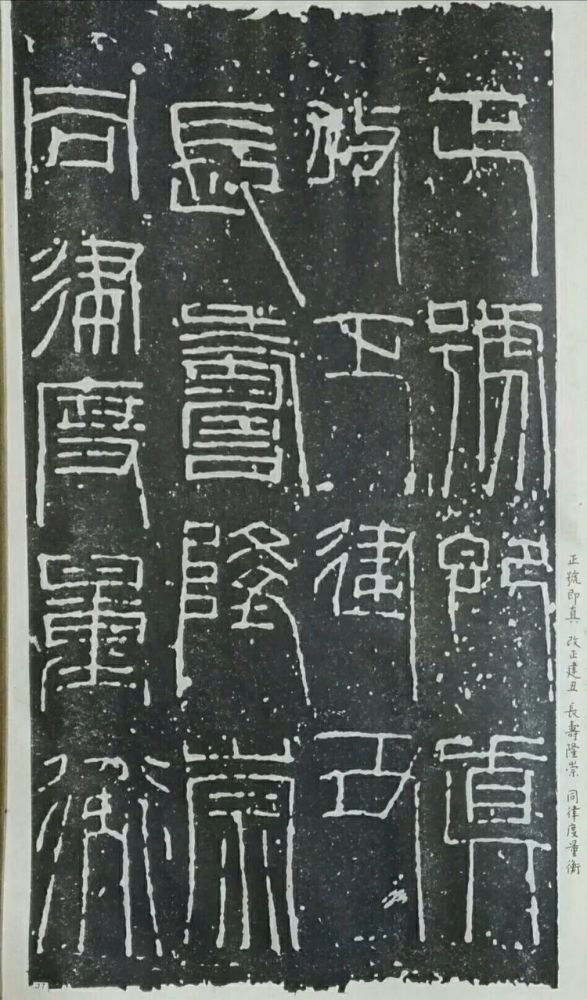 正號即真
改正建丑
長壽隆崇
同律度量衡
正號即真 改正建丑 長壽隆崇 同律度量衡